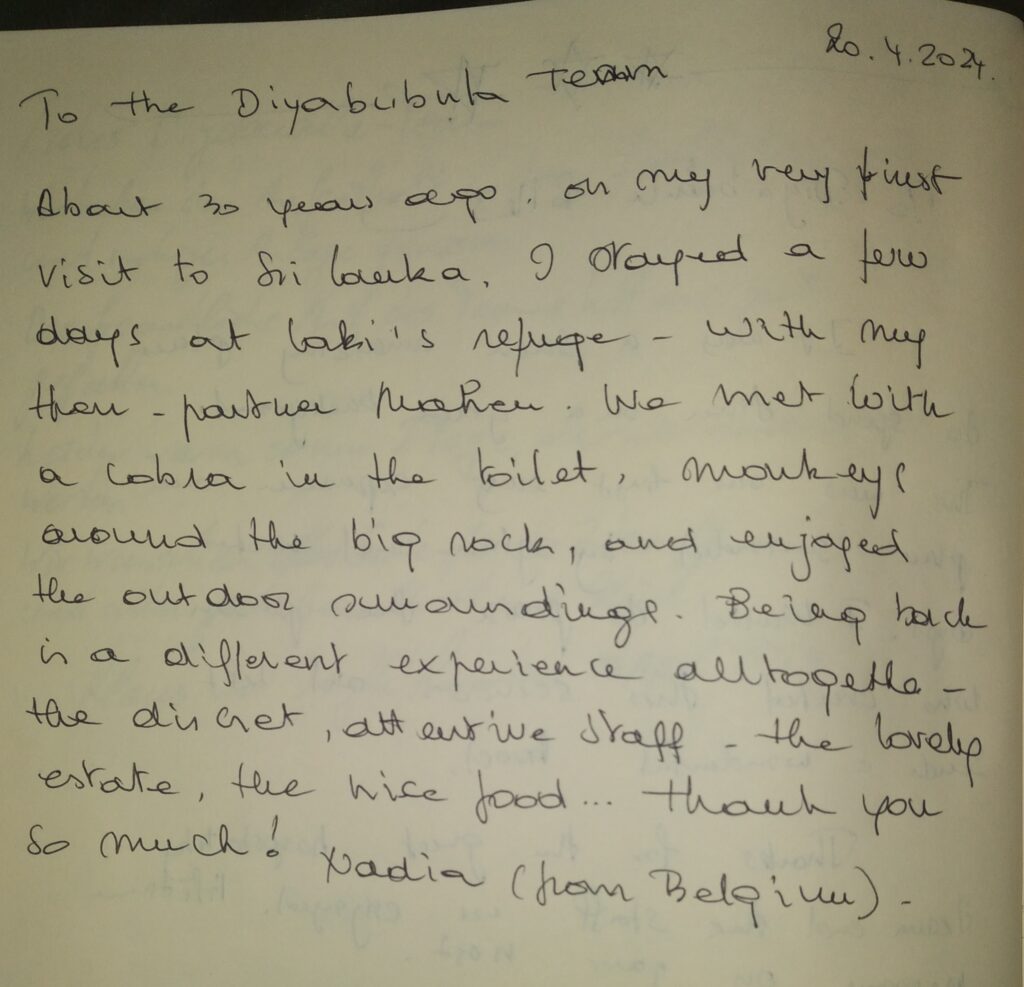 20.4.2024.
To the Diyabubula Team
About 30 years ago. on my very first
visit to Sri Lanka, I stayed a few
days at Laki's refuge - with my
then - partner We met with
a cobra in the toilet, monkeys
around the big rock, and enjoyed
the outdoor surroundings. Being back
is a different experience alltogethe -
the discret, attentive staff - the lovely
estate, the nice food... thank you
so much!
Nadia (from Belgium) -